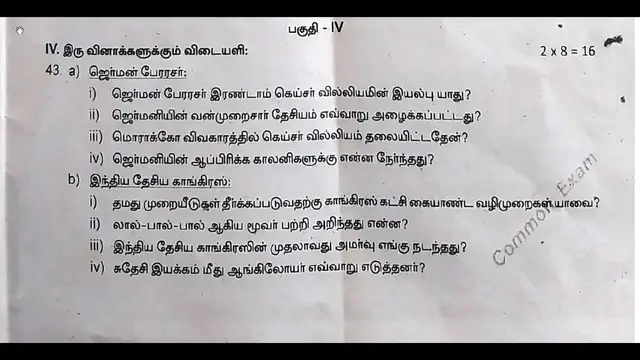 பகுதி - IV
IV. இரு வினாக்களுக்கும் விடையளி: 2 x 8 = 16
43. a) ஜெர்மன் பேரரசர்:
i) ஜெர்மன் பேரரசர் இரண்டாம் கெய்சர் வில்லியமின் இயல்பு யாது?
ii) ஜெர்மனியின் வன்முறைசார் தேசியம் எவ்வாறு அழைக்கப்பட்டது?
iii) மொராக்கோ விவகாரத்தில் கெய்சர் வில்லியம் தலையிட்டதேன்?
iv) ஜெர்மனியின் ஆப்பிரிக்க காலனிகளுக்கு என்ன நேர்ந்தது?
b) இந்திய தேசிய காங்கிரஸ்:
i) தமது முறையீடுகள் தீர்க்கப்படுவதற்கு காங்கிரஸ் கட்சி கையாண்ட வழிமுறைகள் யாவை?
ii) லால்-பால்-பால் ஆகிய மூவர் பற்றி அறிந்தது என்ன?
iii) இந்திய தேசிய காங்கிரஸின் முதலாவது அமர்வு எங்கு நடந்தது?
iv) சுதேசி இயக்கம் மீது ஆங்கிலேயர் எவ்வாறு எடுத்தனர்?
Common Exam